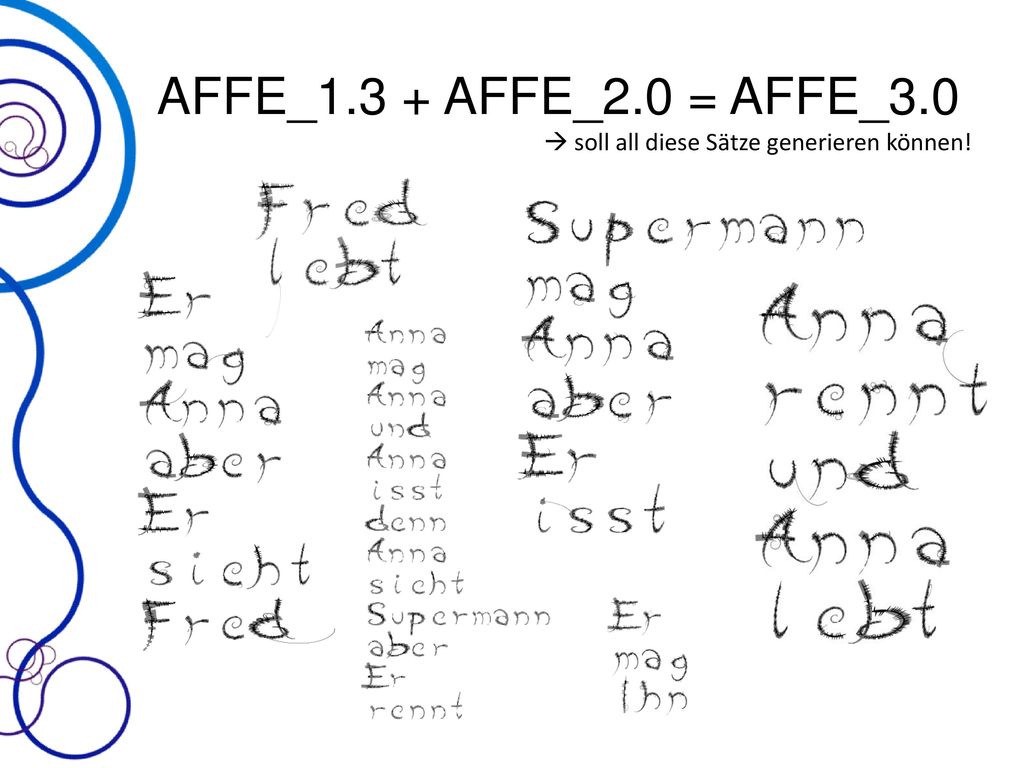 AFFE_1.3 + AFFE_2.0 = AFFE_3.0
→ soll all diese Sätze generieren können!
Fred
lebt
Er
mag
Anna
aber
Er
sieht
Fred
Anna
mag
Anna
und
Anna
isst
denn
Anna
sieht
Supermann
aber
Er
rennt
Supermann
mag
Anna
aber
Er
isst
Er
mag
Ihn
Anna
rennt
und
Anna
lebt